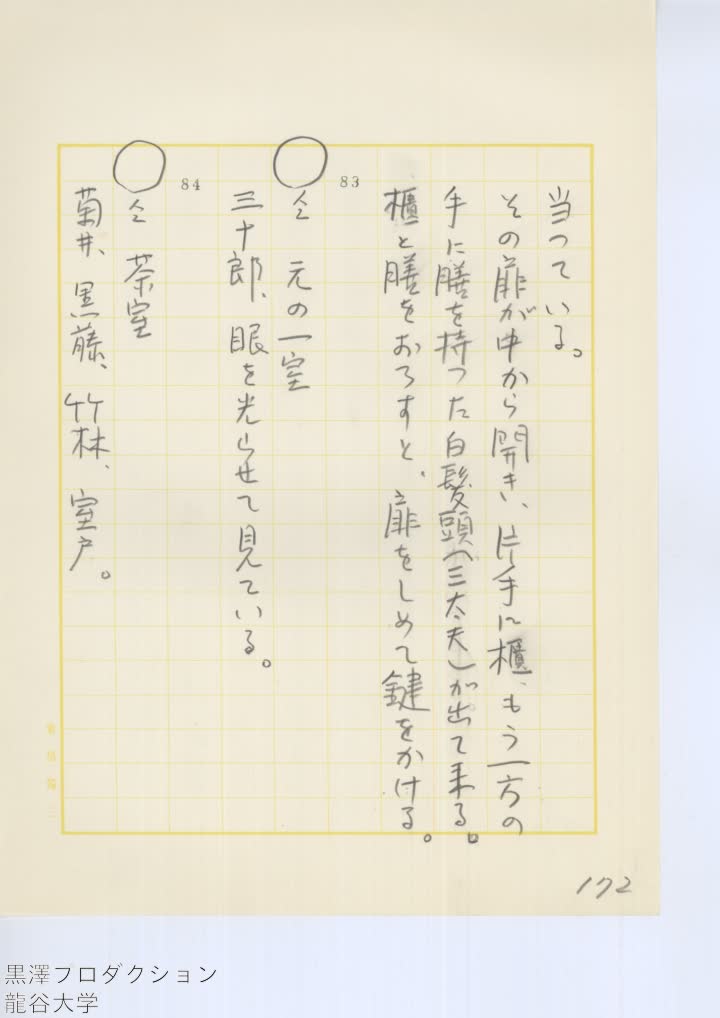 当っている。
その扉が中から開き、片手に櫃、もう一方の
手に膳を持った白髪頭(三太夫)が出て来る。
櫃と膳をおろすと、扉をしめて鍵をかける。
83
○仝 元の一室
三十郎、眼を光らせて見ている。
84
○仝 茶室
菊井、黒藤、竹林、室戸。
172
黒澤プロダクション
龍谷大学